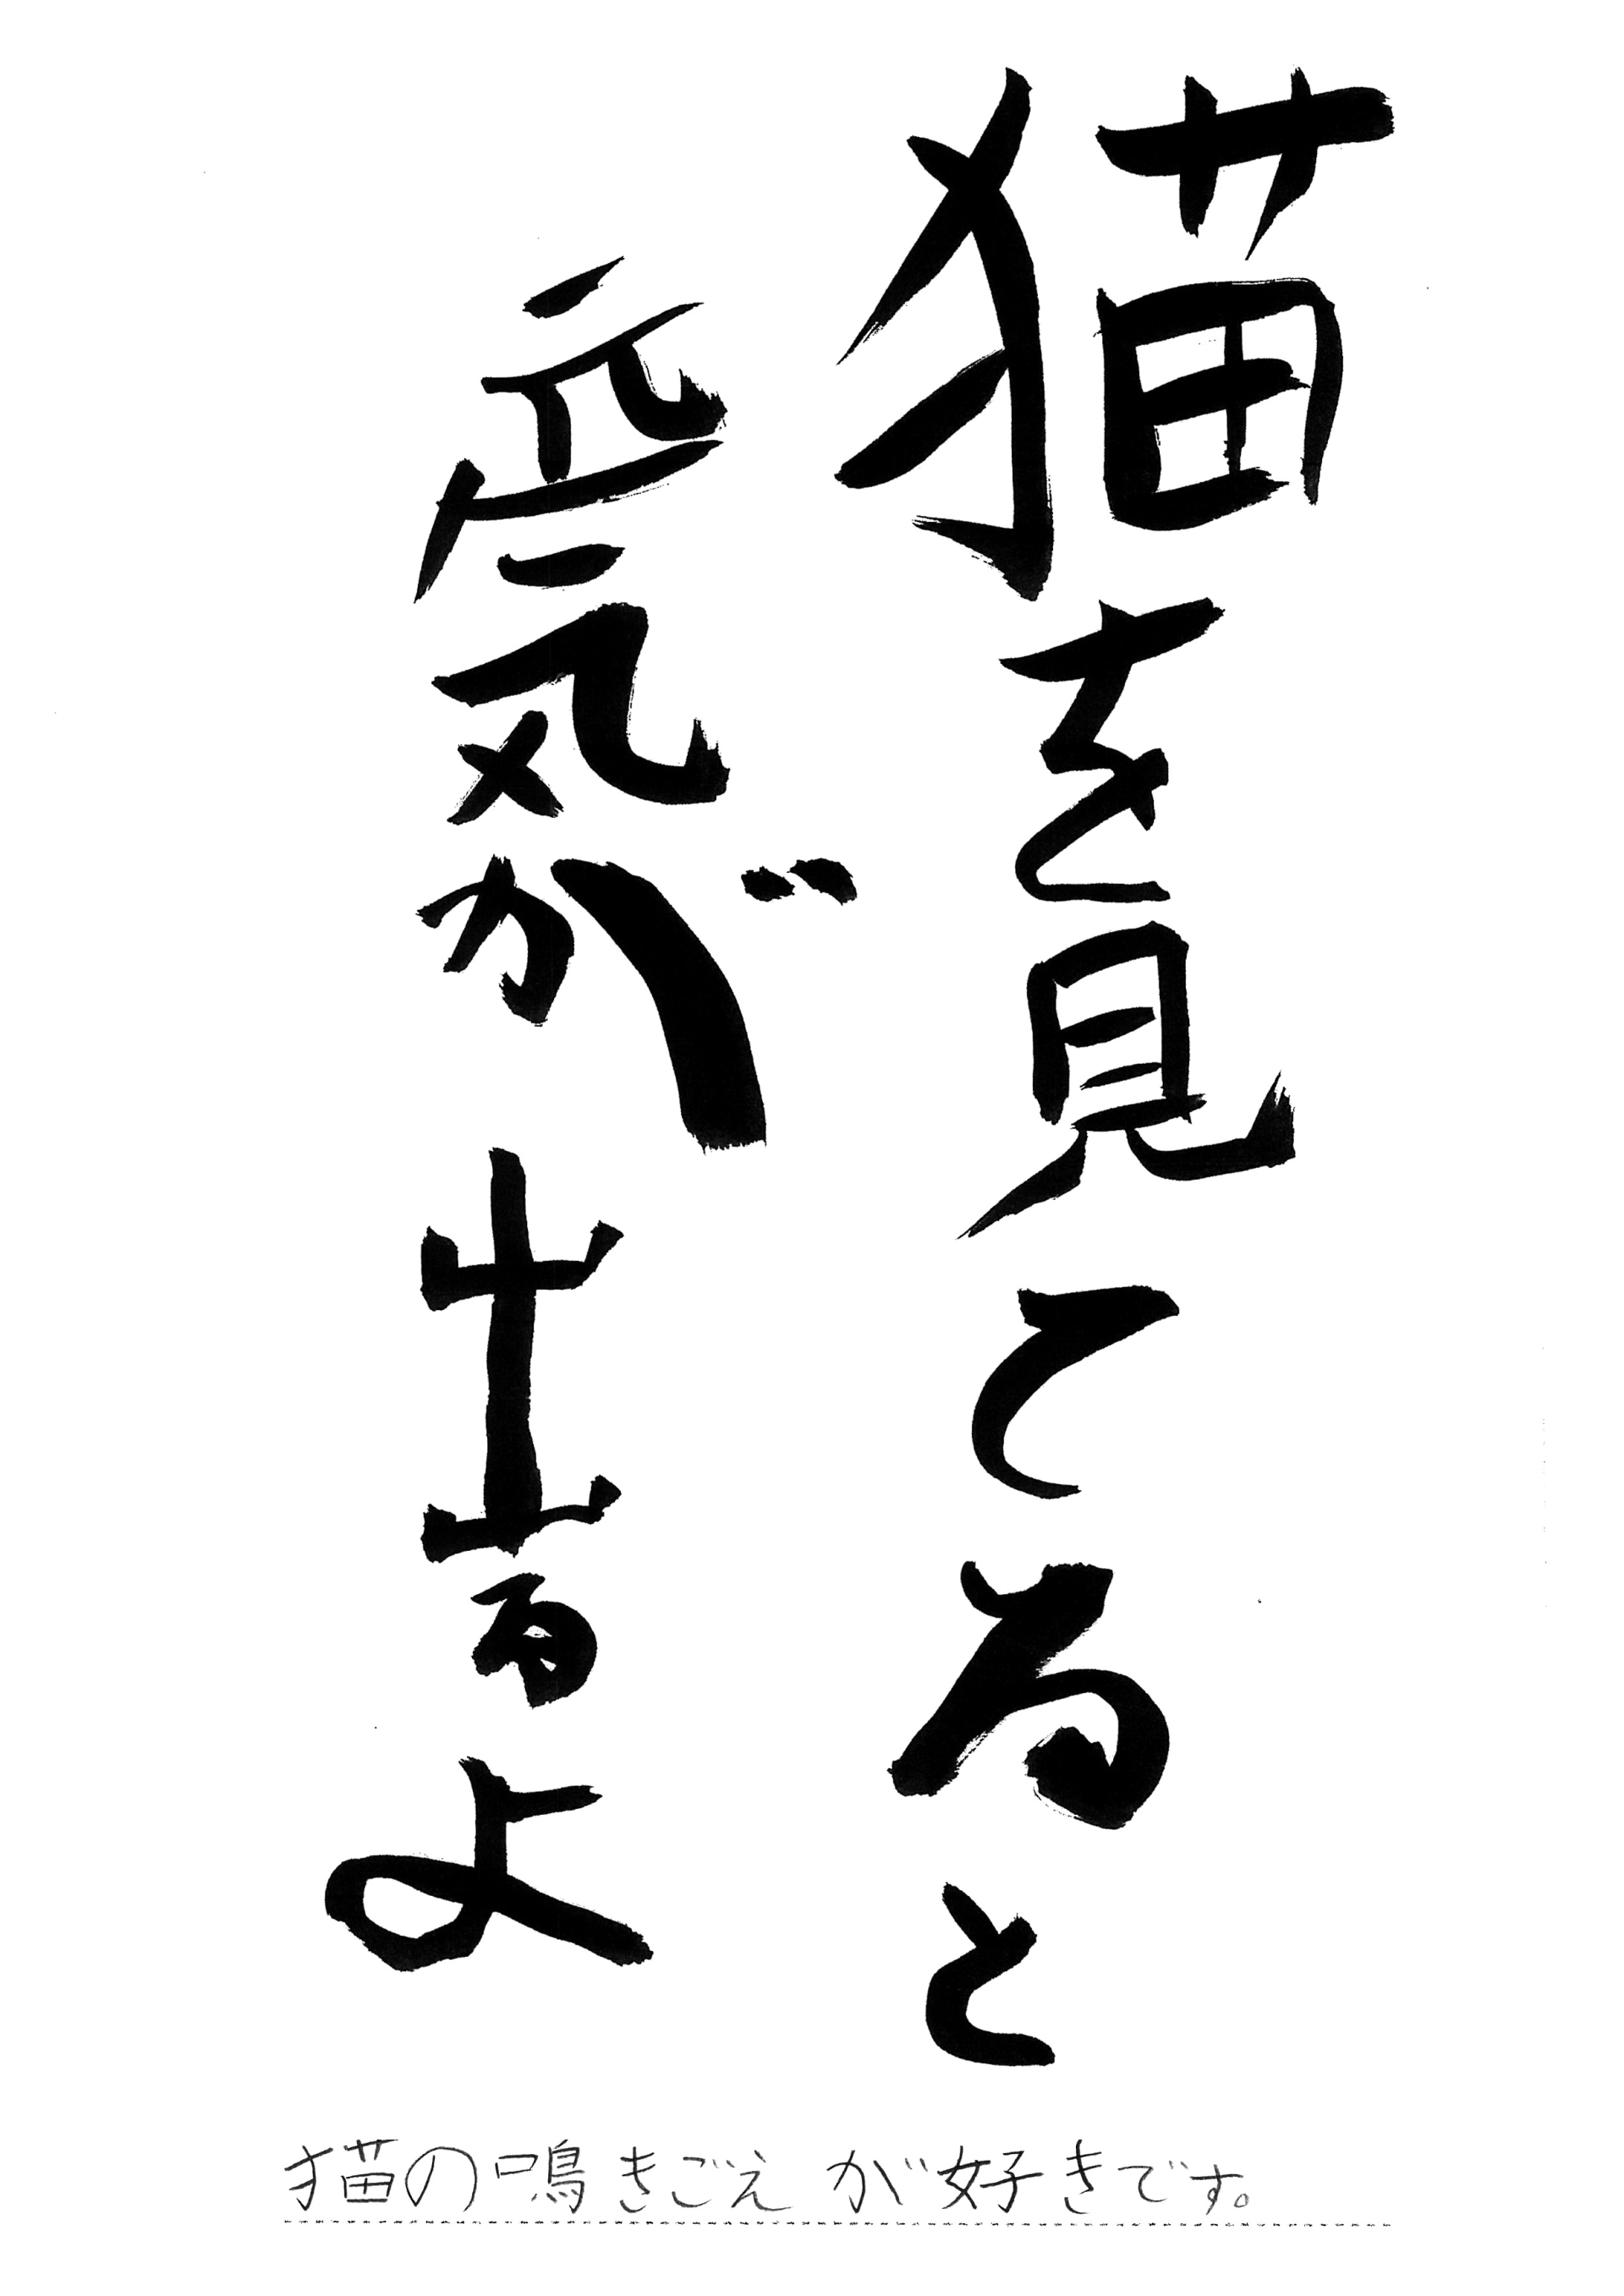 猫を見てると
元気が出るよ
猫の鳴きごえが好きです。